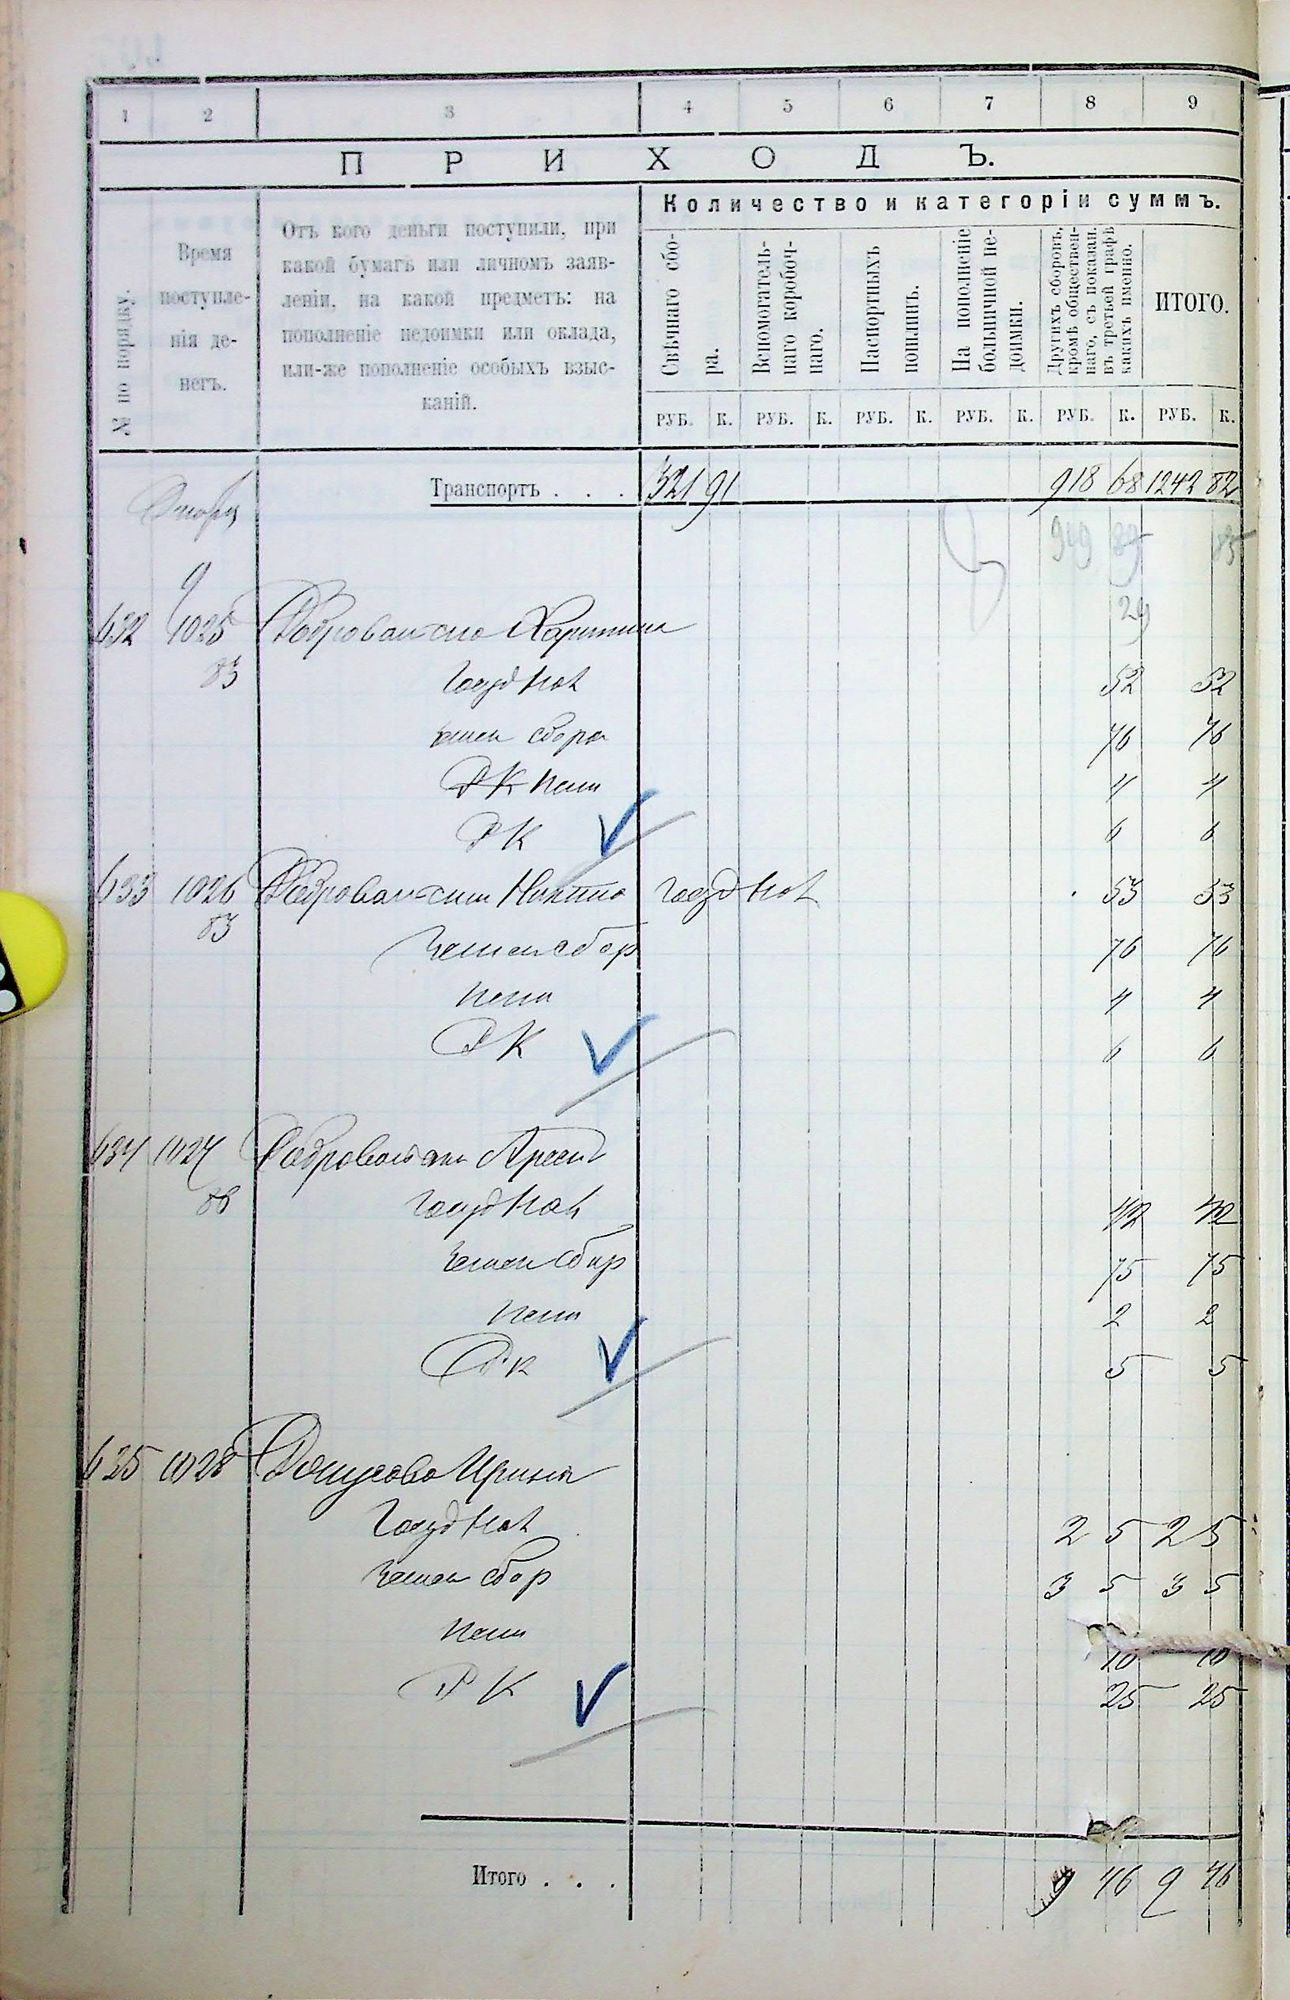 1 2 3 4 5 6 7 8 9
ПРИХОДЪ.
№ по порядку.
Время
поступле-
нія де-
негъ.
Отъ кого деньги поступили, при
какой бумагѣ или личномъ заяв-
леніи, на какой предметъ: на
пополненіе недоимки или оклада,
или-же пополненіе особыхъ взыс-
каній.
Количество и категоріи суммъ.
Свѣчнаго сбо-
ра.
Вспомогатель-
наго коробоч-
наго.
Паспортныхъ
пошлинъ.
На пополненіе
больничной не-
доимки.
Другихъ сборовъ,
кромѣ обществен-
наго, съ показан.
въ третьей графѣ
какихъ именно.
ИТОГО.
РУБ. К. РУБ. К. РУБ. К. РУБ. К. РУБ. К. РУБ. К.
Транспортъ . . . 321 91 918 68 1242 82
949 85
29
9
632 1025
83 Госуд Нал 52 52
земск сбора 76 76
РК пени 4 4
РК 6 6
633 1026 Госуд Нал 53 53
83 Земск сбор 76 76
пени 4 4
РК 6 6
634 1027
86 Госуд Нал 42 42
Земск сбор 75 75
пени 2 2
РК 5 5
635 1028 Ирина
Госуд Нал 2 5 2 5
земск сбор 3 5 3 5
пени 10 10
РК 25 25
Итого . . . 9 46 9 46